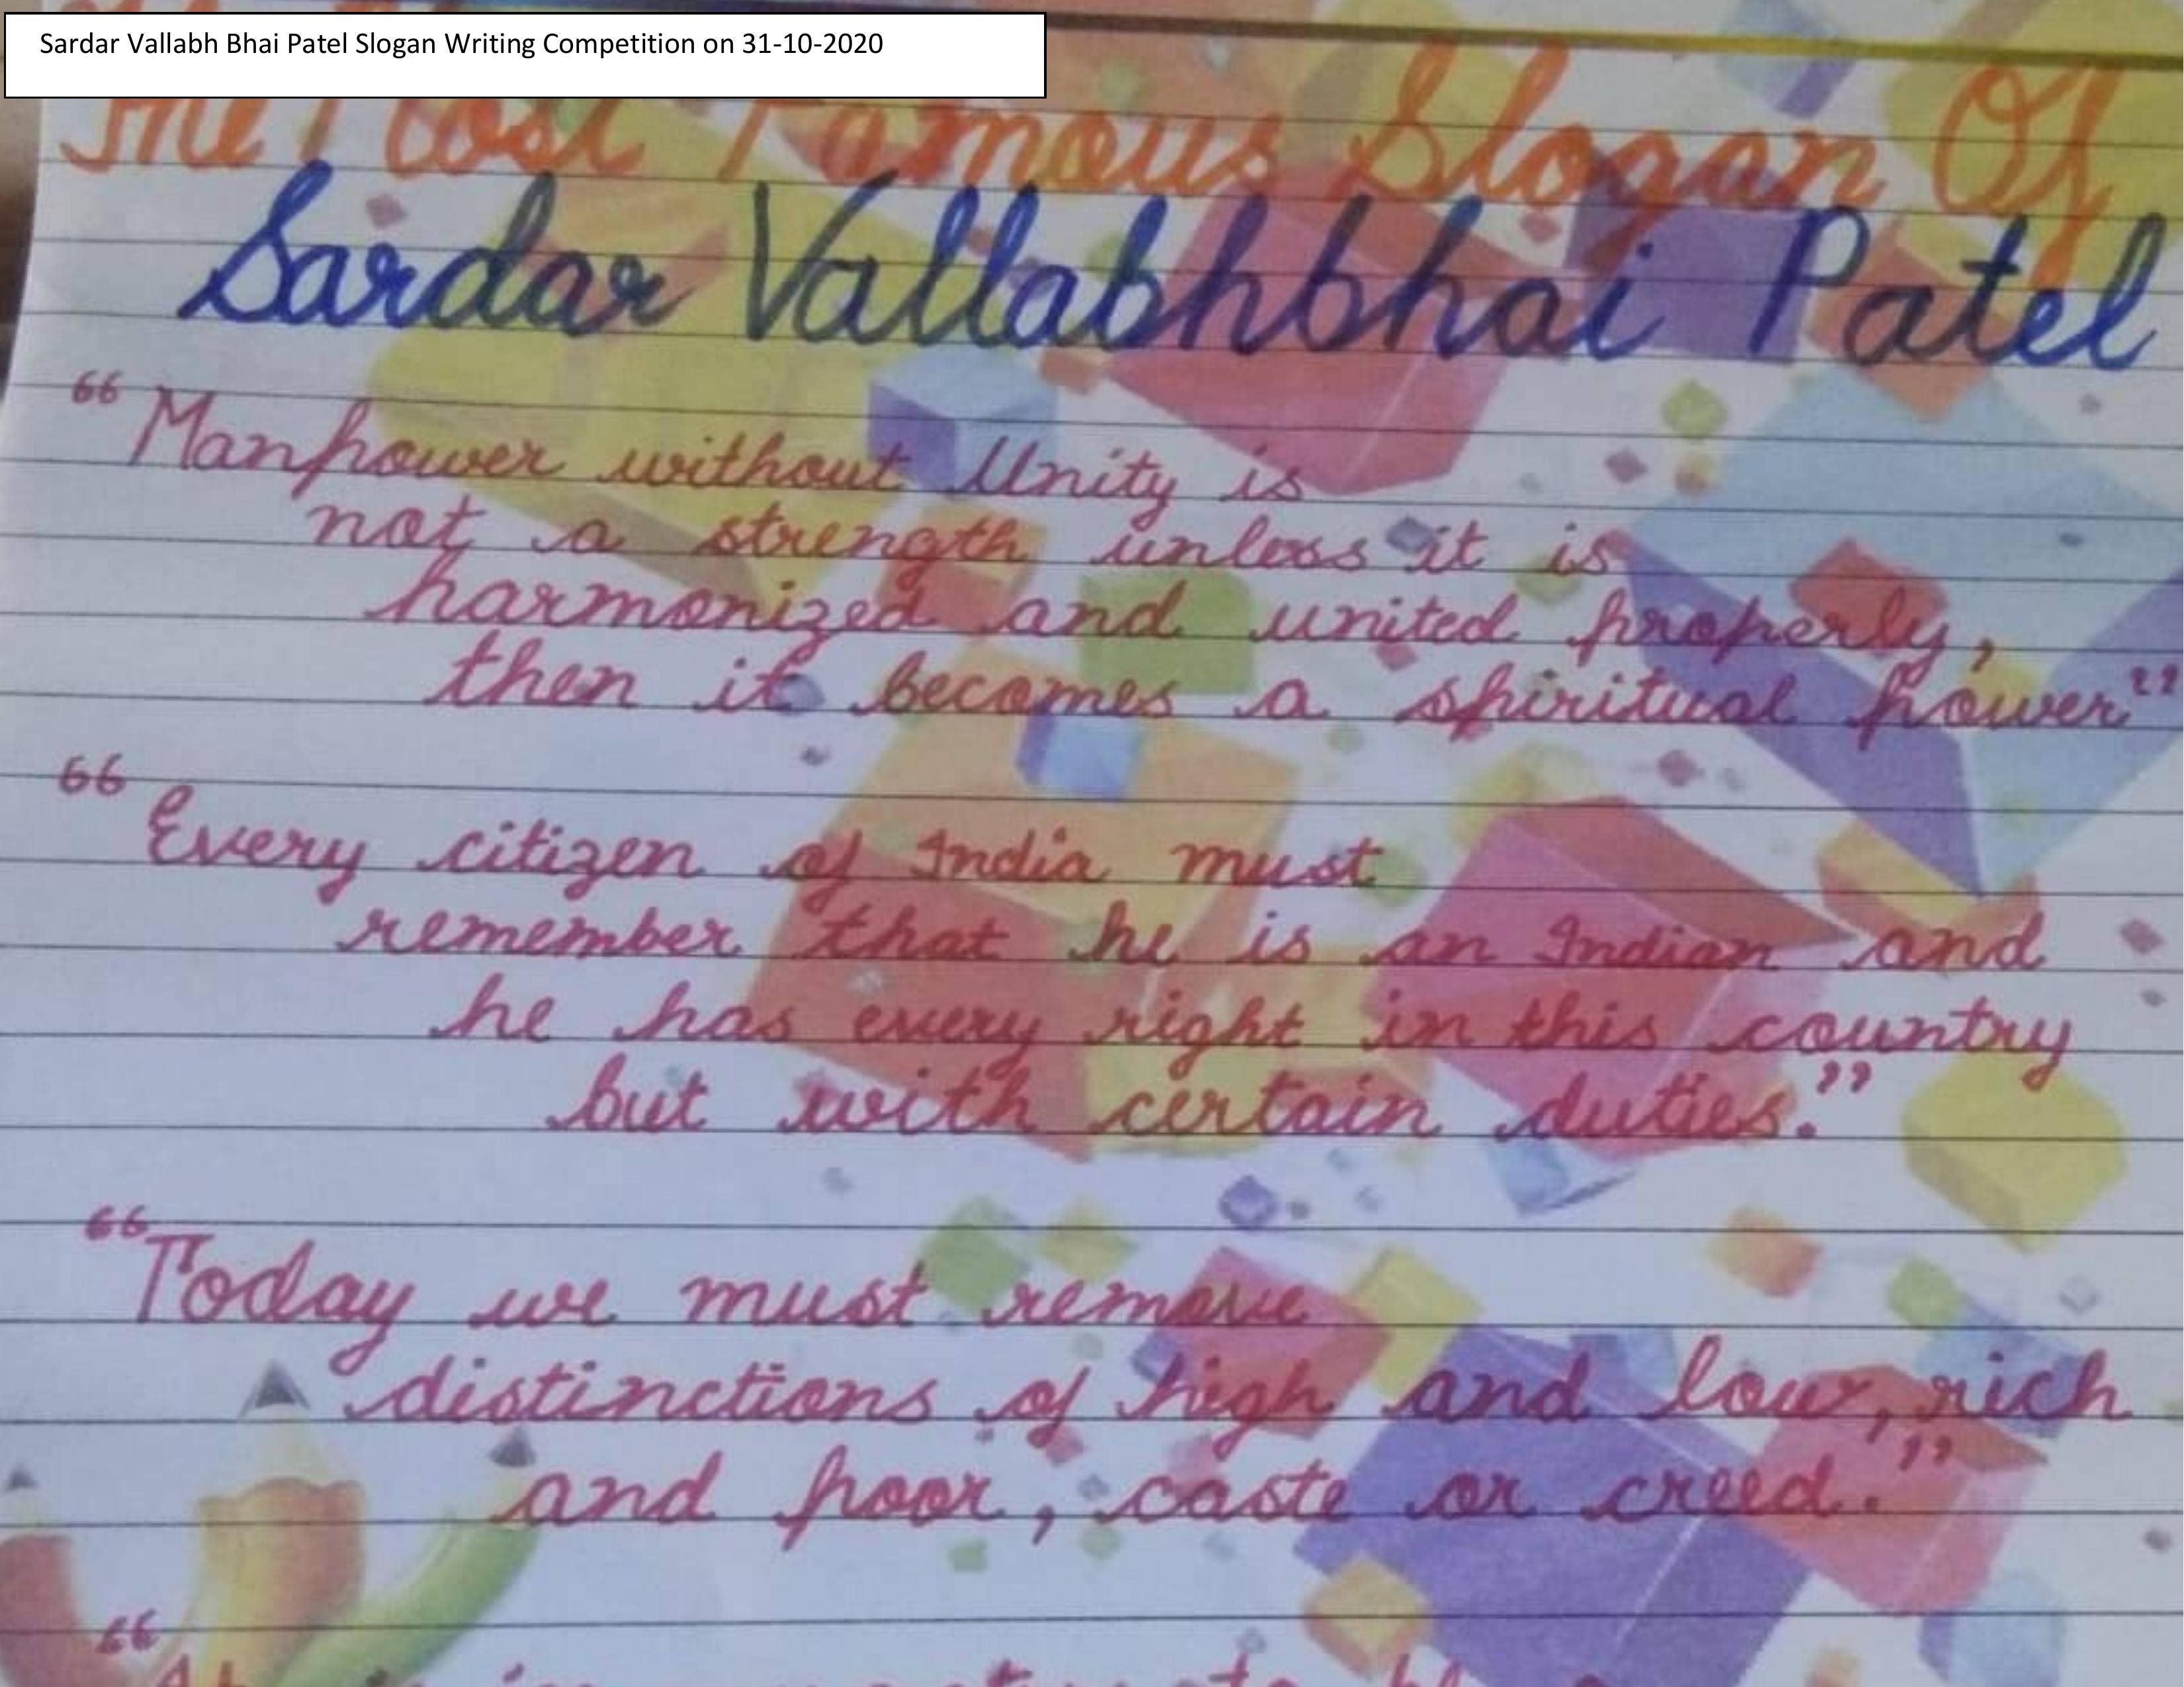 Sardar Vallabh Bhai Patel Slogan Writing Competition on 31-10-2020
The Most Famous Slogan Of
Sardar Vallabhbhai Patel
“Manpower without Unity is
not a strength unless it is
harmonized and united properly,
then it becomes a spiritual power”
“Every citizen of India must
remember that he is an Indian and
he has every right in this country
but with certain duties.”
“Today we must remove
distinctions of high and low, rich
and poor, caste or creed.”
“